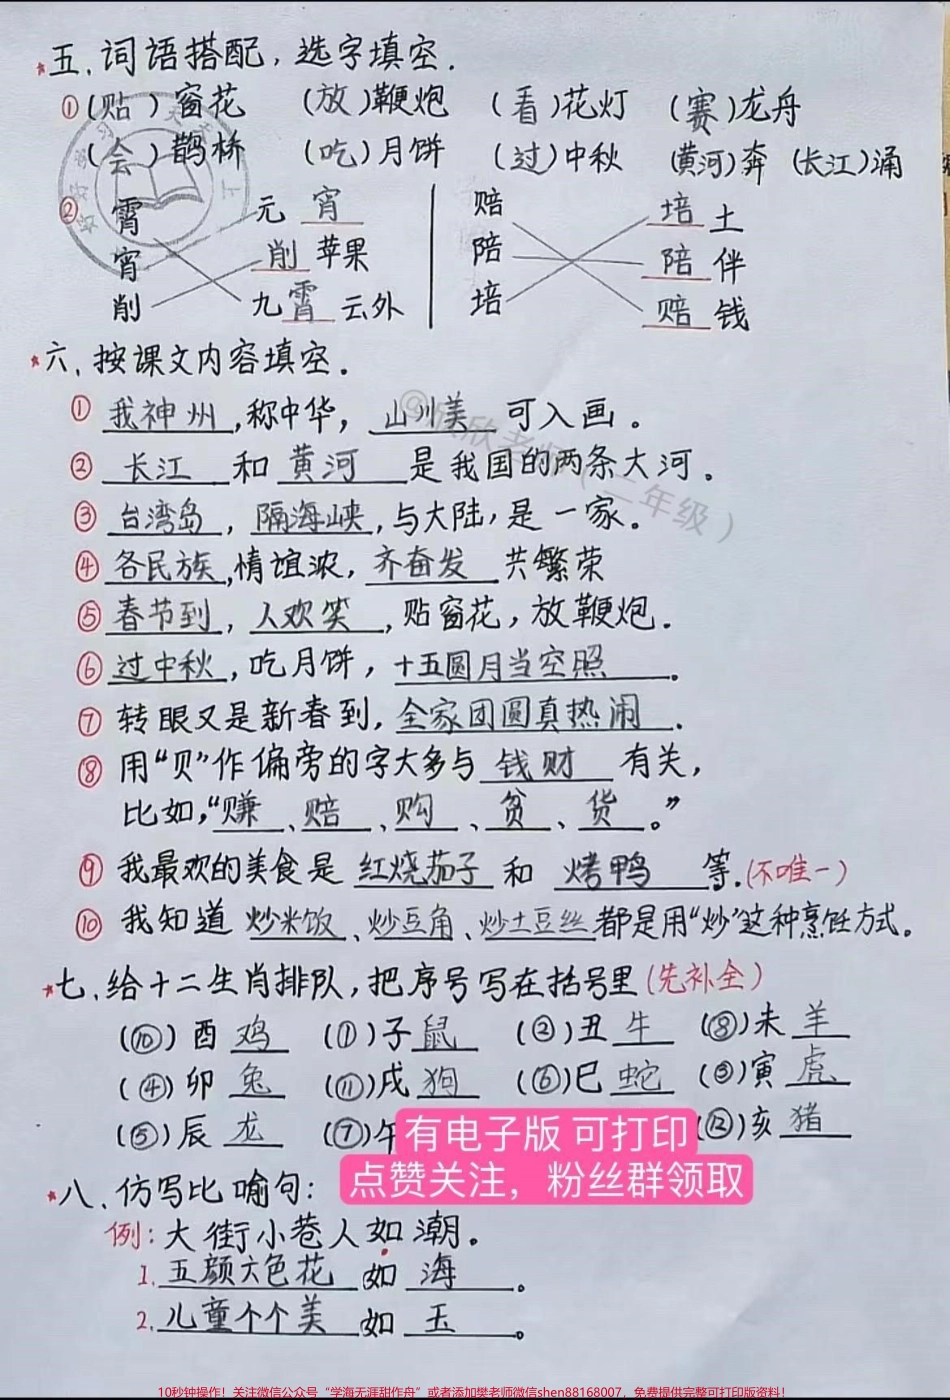 ★五、词语搭配，选字填空.
①(贴)窗花 (放)鞭炮 (看)花灯 (赛)龙舟
(会)鹊桥 (吃)月饼 (过)中秋 (黄河)奔 (长江)涌
② 霄 元宵 赔 培土
宵 削苹果 陪 陪伴
削 九霄云外 培 赔钱
★六、按课文内容填空.
① 我神州,称中华，山川美可入画。
② 长江和黄河是我国的两条大河.
③ 台湾岛，隔海峡,与大陆,是一家。
④ 各民族,情谊浓,齐奋发共繁荣
⑤ 春节到，人欢笑,贴窗花，放鞭炮.
⑥ 过中秋,吃月饼，十五圆月当空照.
⑦ 转眼又是新春到,全家团圆真热闹.
⑧ 用“贝”作偏旁的字大多与钱财有关,
比如,“赚、赔、购、贫、货。”
⑨ 我最欢的美食是红烧茄子和烤鸭等.(不唯一)
⑩ 我知道炒米饭、炒豆角、炒土豆丝都是用“炒”这种烹饪方式。
★七、给十二生肖排队,把序号写在括号里(先补全)
(⑩)酉鸡 (①)子鼠 (②)丑牛 (⑧)未羊
(④)卯兔 (⑪)戌狗 (⑥)巳蛇 (③)寅虎
(⑤)辰龙 (⑦)午 (⑫)亥猪
有电子版 可打印
点赞关注，粉丝群领取
★八、仿写比喻句:
例:大街小巷人如潮。
1.五颜六色花如海。
2.儿童个个美如玉。
@欣欣老师（二年级）
10秒钟操作！关注微信公众号“学海无涯甜作舟”或者添加樊老师微信shen88168007，免费提供完整可打印版资料！